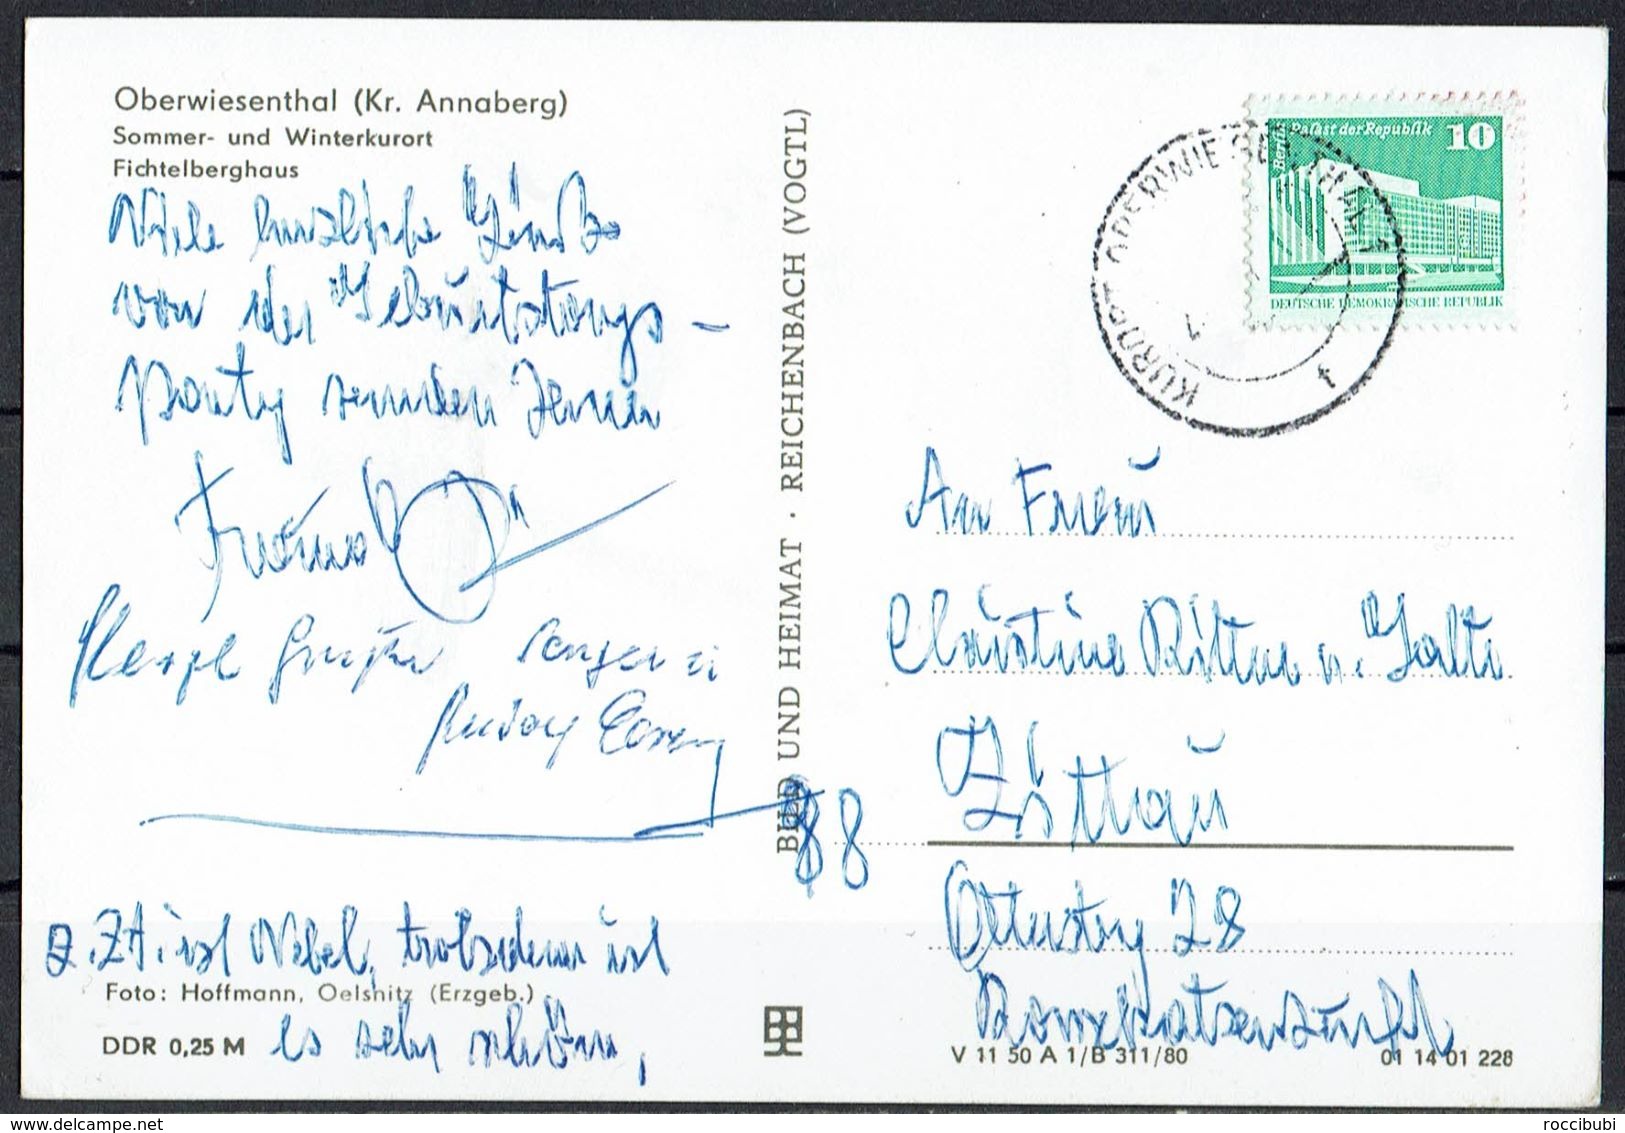 Oberwiesenthal (Kr. Annaberg)
Sommer- und Winterkurort
Fichtelberghaus
Viele herzliche Grüße
von der Geburtstags-
Party senden Ihnen
Rudolf
Z. Zt. ist Nebel, trotzdem ist
es sehr schön,
Foto: Hoffmann, Oelsnitz (Erzgeb.)
DDR 0,25 M
BILD UND HEIMAT · REICHENBACH (VOGTL)
Berlin Palast der Republik 10
DEUTSCHE DEMOKRATISCHE REPUBLIK
KURORT OBERWIESENTHAL 1
An Frau
Christine Ritter u. Gatte
88
Zittau
28
V 11 50 A 1/B 311/80
01 14 01 228
delcampe.net
roccibubi